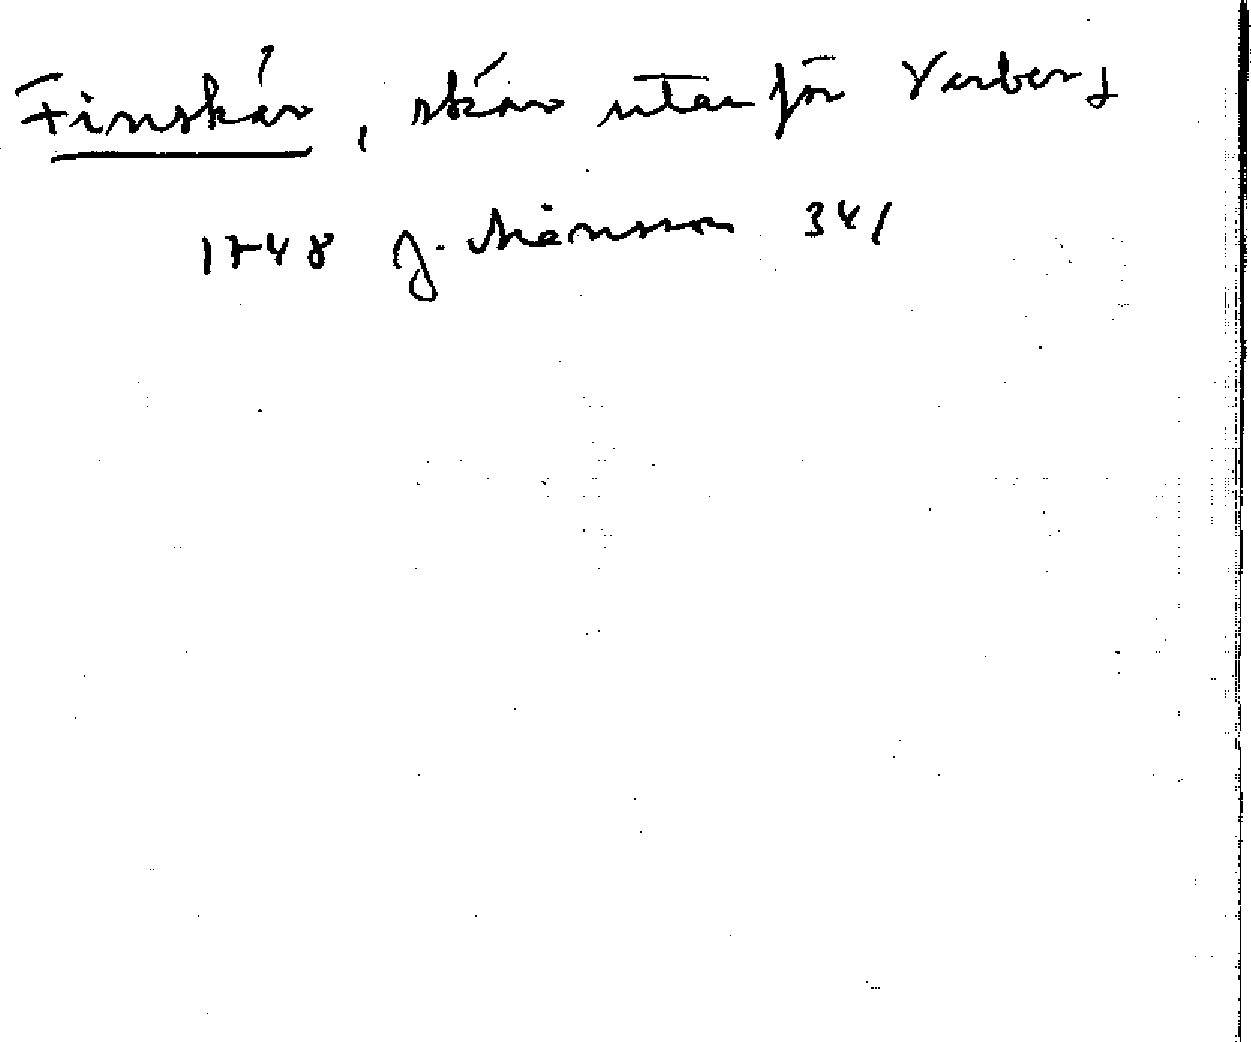 Finskär, skär utanför Varberg
1748 J. Månsson 341